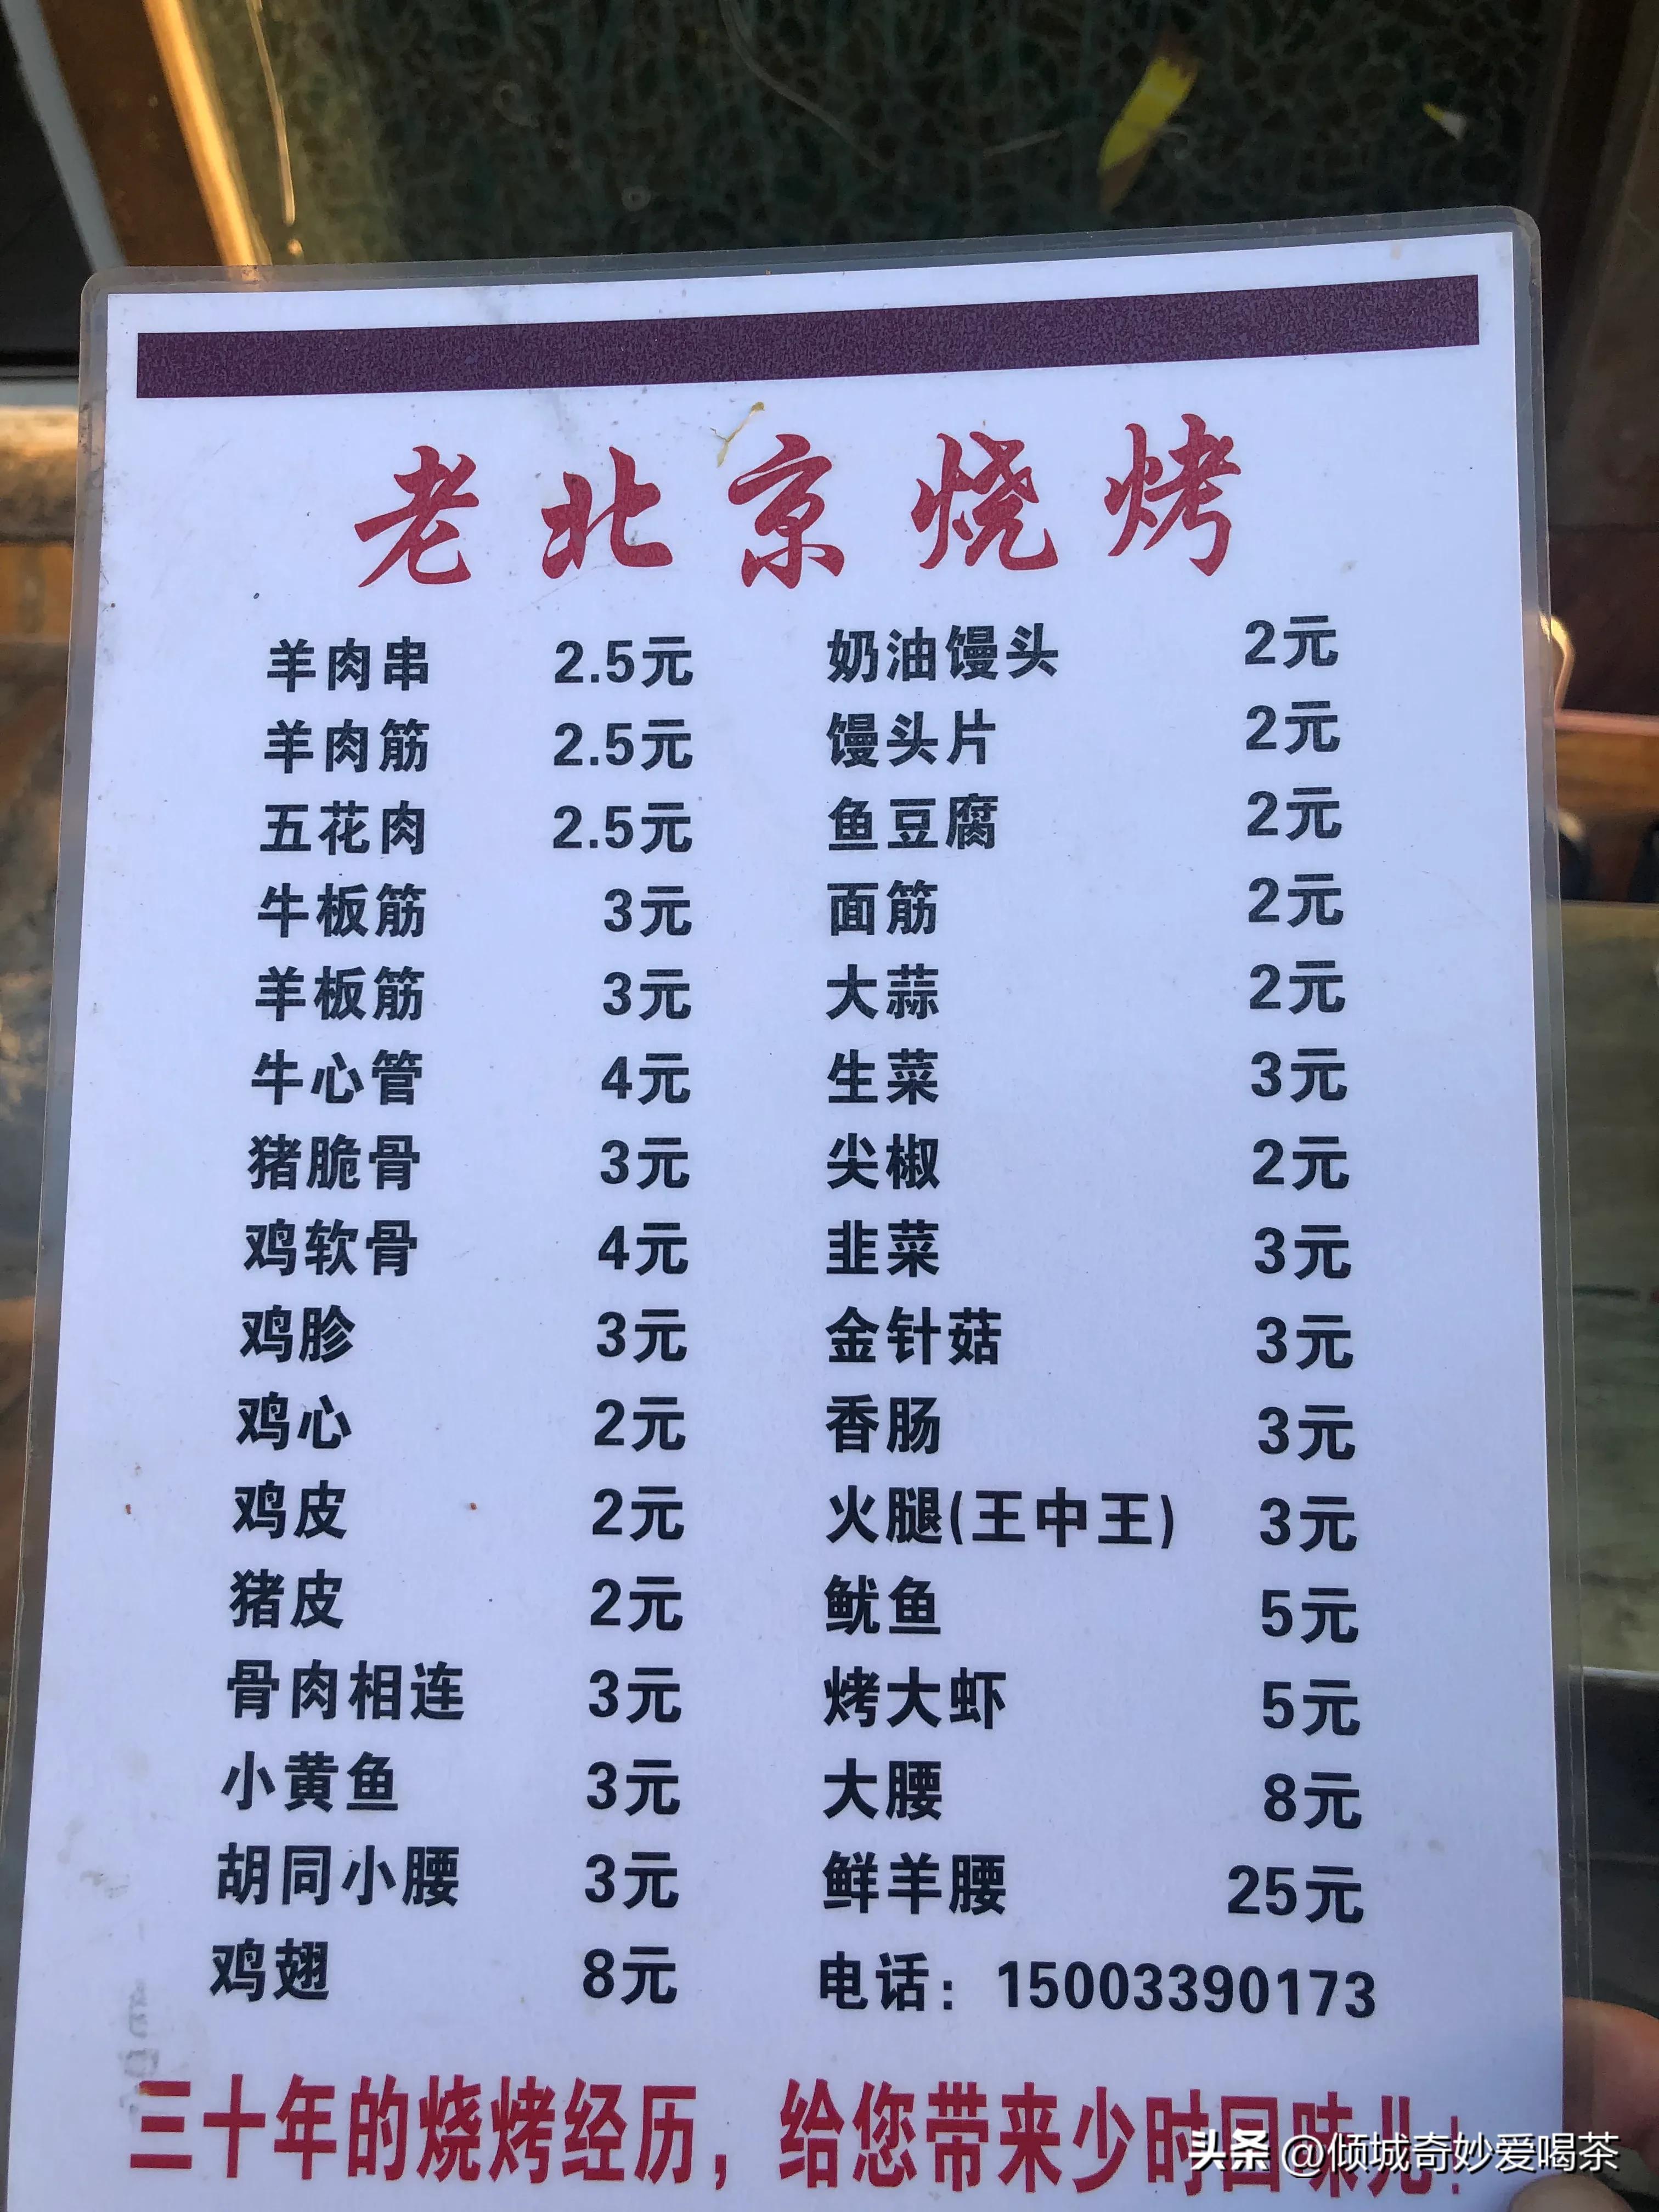 老北京烧烤
羊肉串 2.5元 奶油馒头 2元
羊肉筋 2.5元 馒头片 2元
五花肉 2.5元 鱼豆腐 2元
牛板筋 3元 面筋 2元
羊板筋 3元 大蒜 2元
牛心管 4元 生菜 3元
猪脆骨 3元 尖椒 2元
鸡软骨 4元 韭菜 3元
鸡胗 3元 金针菇 3元
鸡心 2元 香肠 3元
鸡皮 2元 火腿(王中王) 3元
猪皮 2元 鱿鱼 5元
骨肉相连 3元 烤大虾 5元
小黄鱼 3元 大腰 8元
胡同小腰 3元 鲜羊腰 25元
鸡翅 8元 电话：15003390173
三十年的烧烤经历，给您带来少时回味儿！
头条 @倾城奇妙爱喝茶